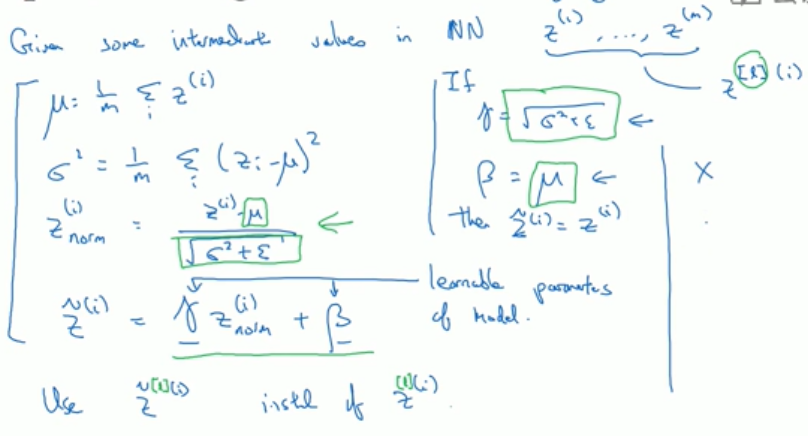 Given some intermediate values in NN z^(1), ..., z^(m)
z^[l](i)
μ = 1/m Σ_i z^(i)
σ² = 1/m Σ_i (z_i - μ)²
z^(i)_norm = (z^(i) - μ) / √(σ² + ε) ←
z̃^(i) = γ z^(i)_norm + β
learnable parameters
of model.
If
γ = √(σ² + ε) ←
β = μ ←
then z̃^(i) = z^(i)
X
Use z̃^[l](i) instead of z^[l](i).